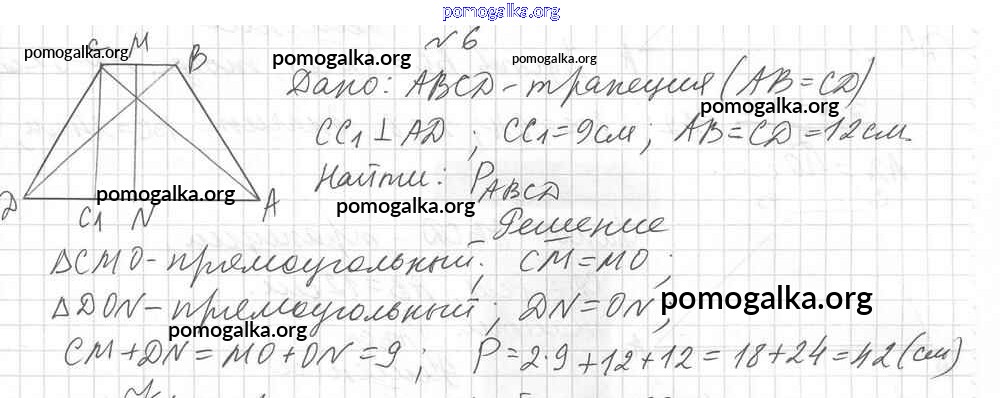 pomogalka.org
№ 6
C M B
pomogalka.org
pomogalka.org
Дано: ABCD - трапеция (AB = CD)
pomogalka.org
CC1 ⊥ AD ; CC1 = 9 см ; AB = CD = 12 см.
Найти: P ABCD
pomogalka.org
pomogalka.org
D C1 N A
Решение
ΔCMO - прямоугольный; CM = MO ;
ΔDON - прямоугольный ; DN = ON ;
pomogalka.org
pomogalka.org
CM + DN = MO + ON = 9 ; P = 2·9 + 12 + 12 = 18 + 24 = 42 (см)